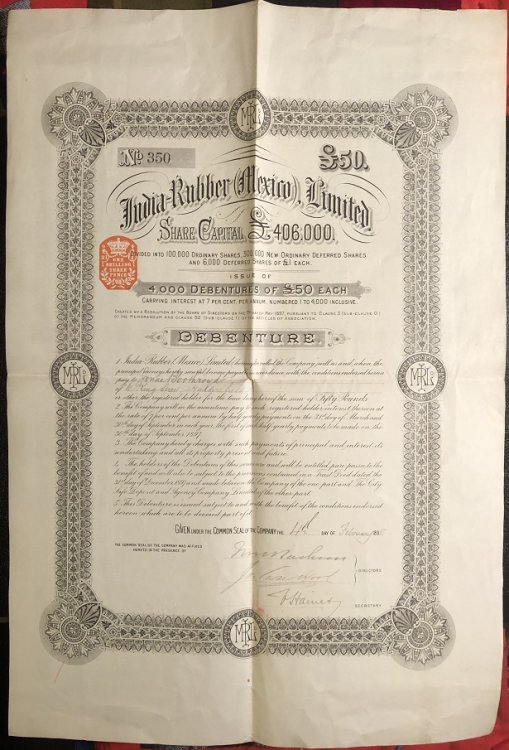 MRL
No 350
£50.
India-Rubber (Mexico), Limited
SHARE CAPITAL £406,000.
DIVIDED INTO 100,000 ORDINARY SHARES, 300,000 NEW ORDINARY DEFERRED SHARES
AND 6,000 DEFERRED SHARES OF £1 EACH.
ONE
SHILLING
PENCE
ISSUE OF
4,000 DEBENTURES OF £50 EACH
CARRYING INTEREST AT 7 PER CENT. PER ANNUM, NUMBERED 1 TO 4,000 INCLUSIVE.
CREATED BY A RESOLUTION OF THE BOARD OF DIRECTORS ON THE DAY OF MAY 1897, PURSUANT TO CLAUSE 3 (SUB-CLAUSE
OF THE MEMORANDUM AND CLAUSE 82 (SUB-CLAUSE OF THE ARTICLES OF ASSOCIATION.
DEBENTURE.
1. India-Rubber (Mexico) Limited (hereinafter called the Company) will as and when the
principal moneys hereby secured become payable in accordance with the conditions endorsed hereon
pay to
or other the registered holder for the time being hereof the sum of Fifty Pounds
2. The Company will in the meantime pay to such registered holder interest thereon at
the rate of 7 per cent per annum by half yearly payments on the 31st day of March and
30th day of September in each year, the first of such half yearly payments to be made on the
30th day of September 1897
3. The Company hereby charges with such payments of principal and interest its
undertaking and all its property present and future.
4. The holders of the Debentures of this issue are and will be entitled pari passu to the
benefit of and
day of December and made between the Company of the one part and The City
Safe Deposit and Agency Company Limited of the other part.
5. This Debenture is issued subject to and with the benefit of the conditions endorsed
hereon which are to be deemed part of it.
GIVEN UNDER THE COMMON SEAL OF THE COMPANY THE 4th DAY OF February
THE COMMON SEAL OF THE COMPANY WAS AFFIXED
HERETO IN THE PRESENCE OF
DIRECTORS
Haines
SECRETARY
MRL
MRL
MRL